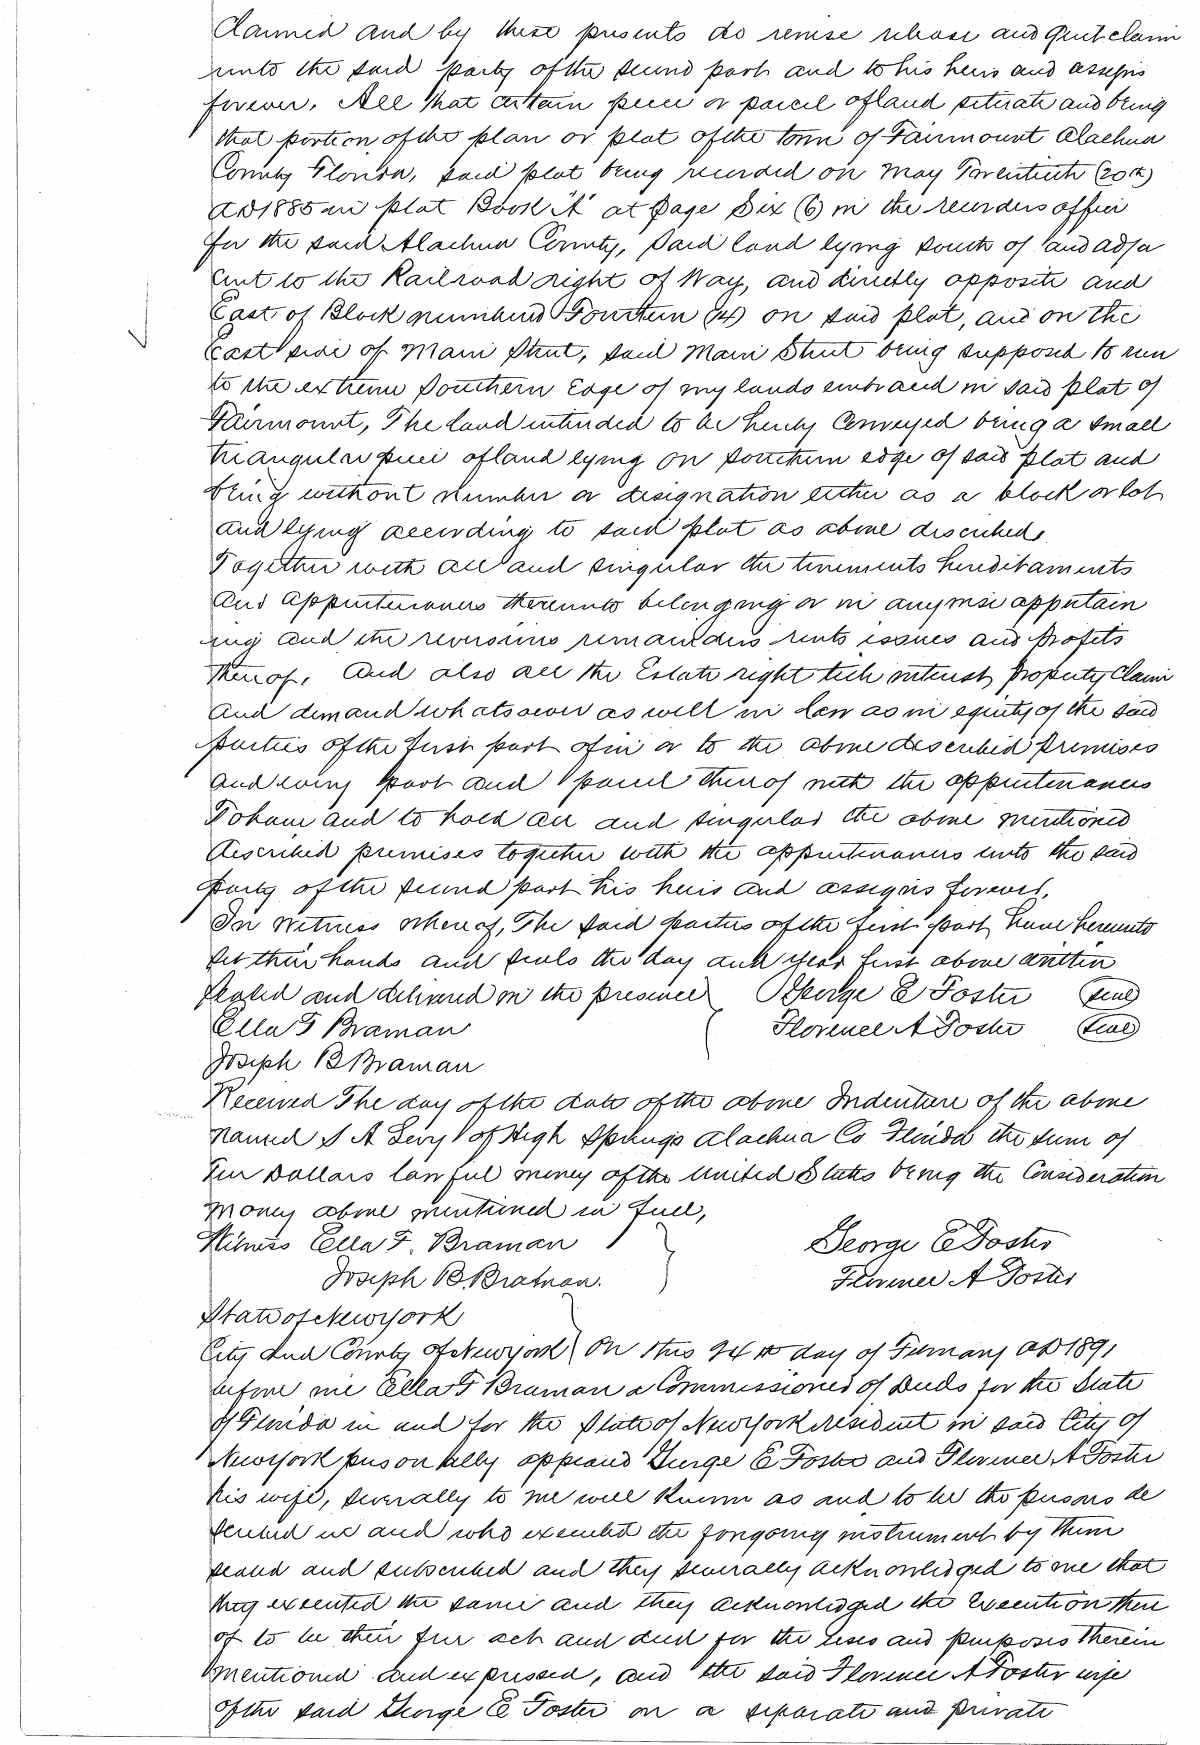 Claimed and by these presents do remise release and Quit claim
unto the said party of the second part and to his heirs and assigns
forever. All that certain piece or parcel of land situate and being
that portion of the plan or plat of the town of Fairmount Alachua
County Florida, said plat being recorded on May Twentieth (20th)
AD 1885 in plat Book "A" at Page Six (6) in the recorders office
for the said Alachua County, said land lying south of and adja
cent to the Railroad right of Way, and directly opposite and
East of Block numbered Fourteen (14) on said plat, and on the
East side of Main Street, said Main Street being supposed to run
to the extreme Southern Edge of my lands embraced in said plat of
Fairmount, The land intended to be hereby Conveyed being a small
triangular piece of land lying on southern edge of said plat and
being without number or designation either as a block or lot
and lying according to said plat as above described,
Together with all and singular the tenements hereditaments
and appurtenances thereunto belonging or in anywise appertain
ing and the reversions remainders rents issues and profits
thereof, And also all the Estate right title interest property Claim
and demand whatsoever as well in law as in equity of the said
parties of the first part of in or to the above described premises
and every part and parcel thereof with the appurtenances
To have and to hold all and singular the above mentioned
described premises together with the appurtenances unto the said
party of the second part his heirs and assigns forever.
In Witness whereof, The said parties of the first part have hereunto
set their hands and seals the day and year first above written
Sealed and delivered in the presence George E Foster (seal)
Ella F Braman Florence A Foster (seal)
Joseph B Braman
Received The day of the date of the above Indenture of the above
named S A Levy of High Springs Alachua Co Florida the sum of
Ten Dollars lawful money of the United States being the Consideration
Money above mentioned in full,
Witness Ella F. Braman George E Foster
Joseph B. Braman. Florence A Foster
State of New York
City and County of New York On this 24th day of February AD 1891
before me Ella F Braman a Commissioner of Deeds for the State
of Florida in and for the State of New York resident in said City of
New York personally appeared George E Foster and Florence A Foster
his wife, severally to me well known as and to be the persons de
scribed in and who executed the foregoing instrument by them
sealed and subscribed and they severally acknowledged to me that
they executed the same and they acknowledged the Execution there
of to be their free act and deed for the uses and purposes therein
mentioned and expressed, and the said Florence A Foster wife
of the said George E Foster on a separate and private